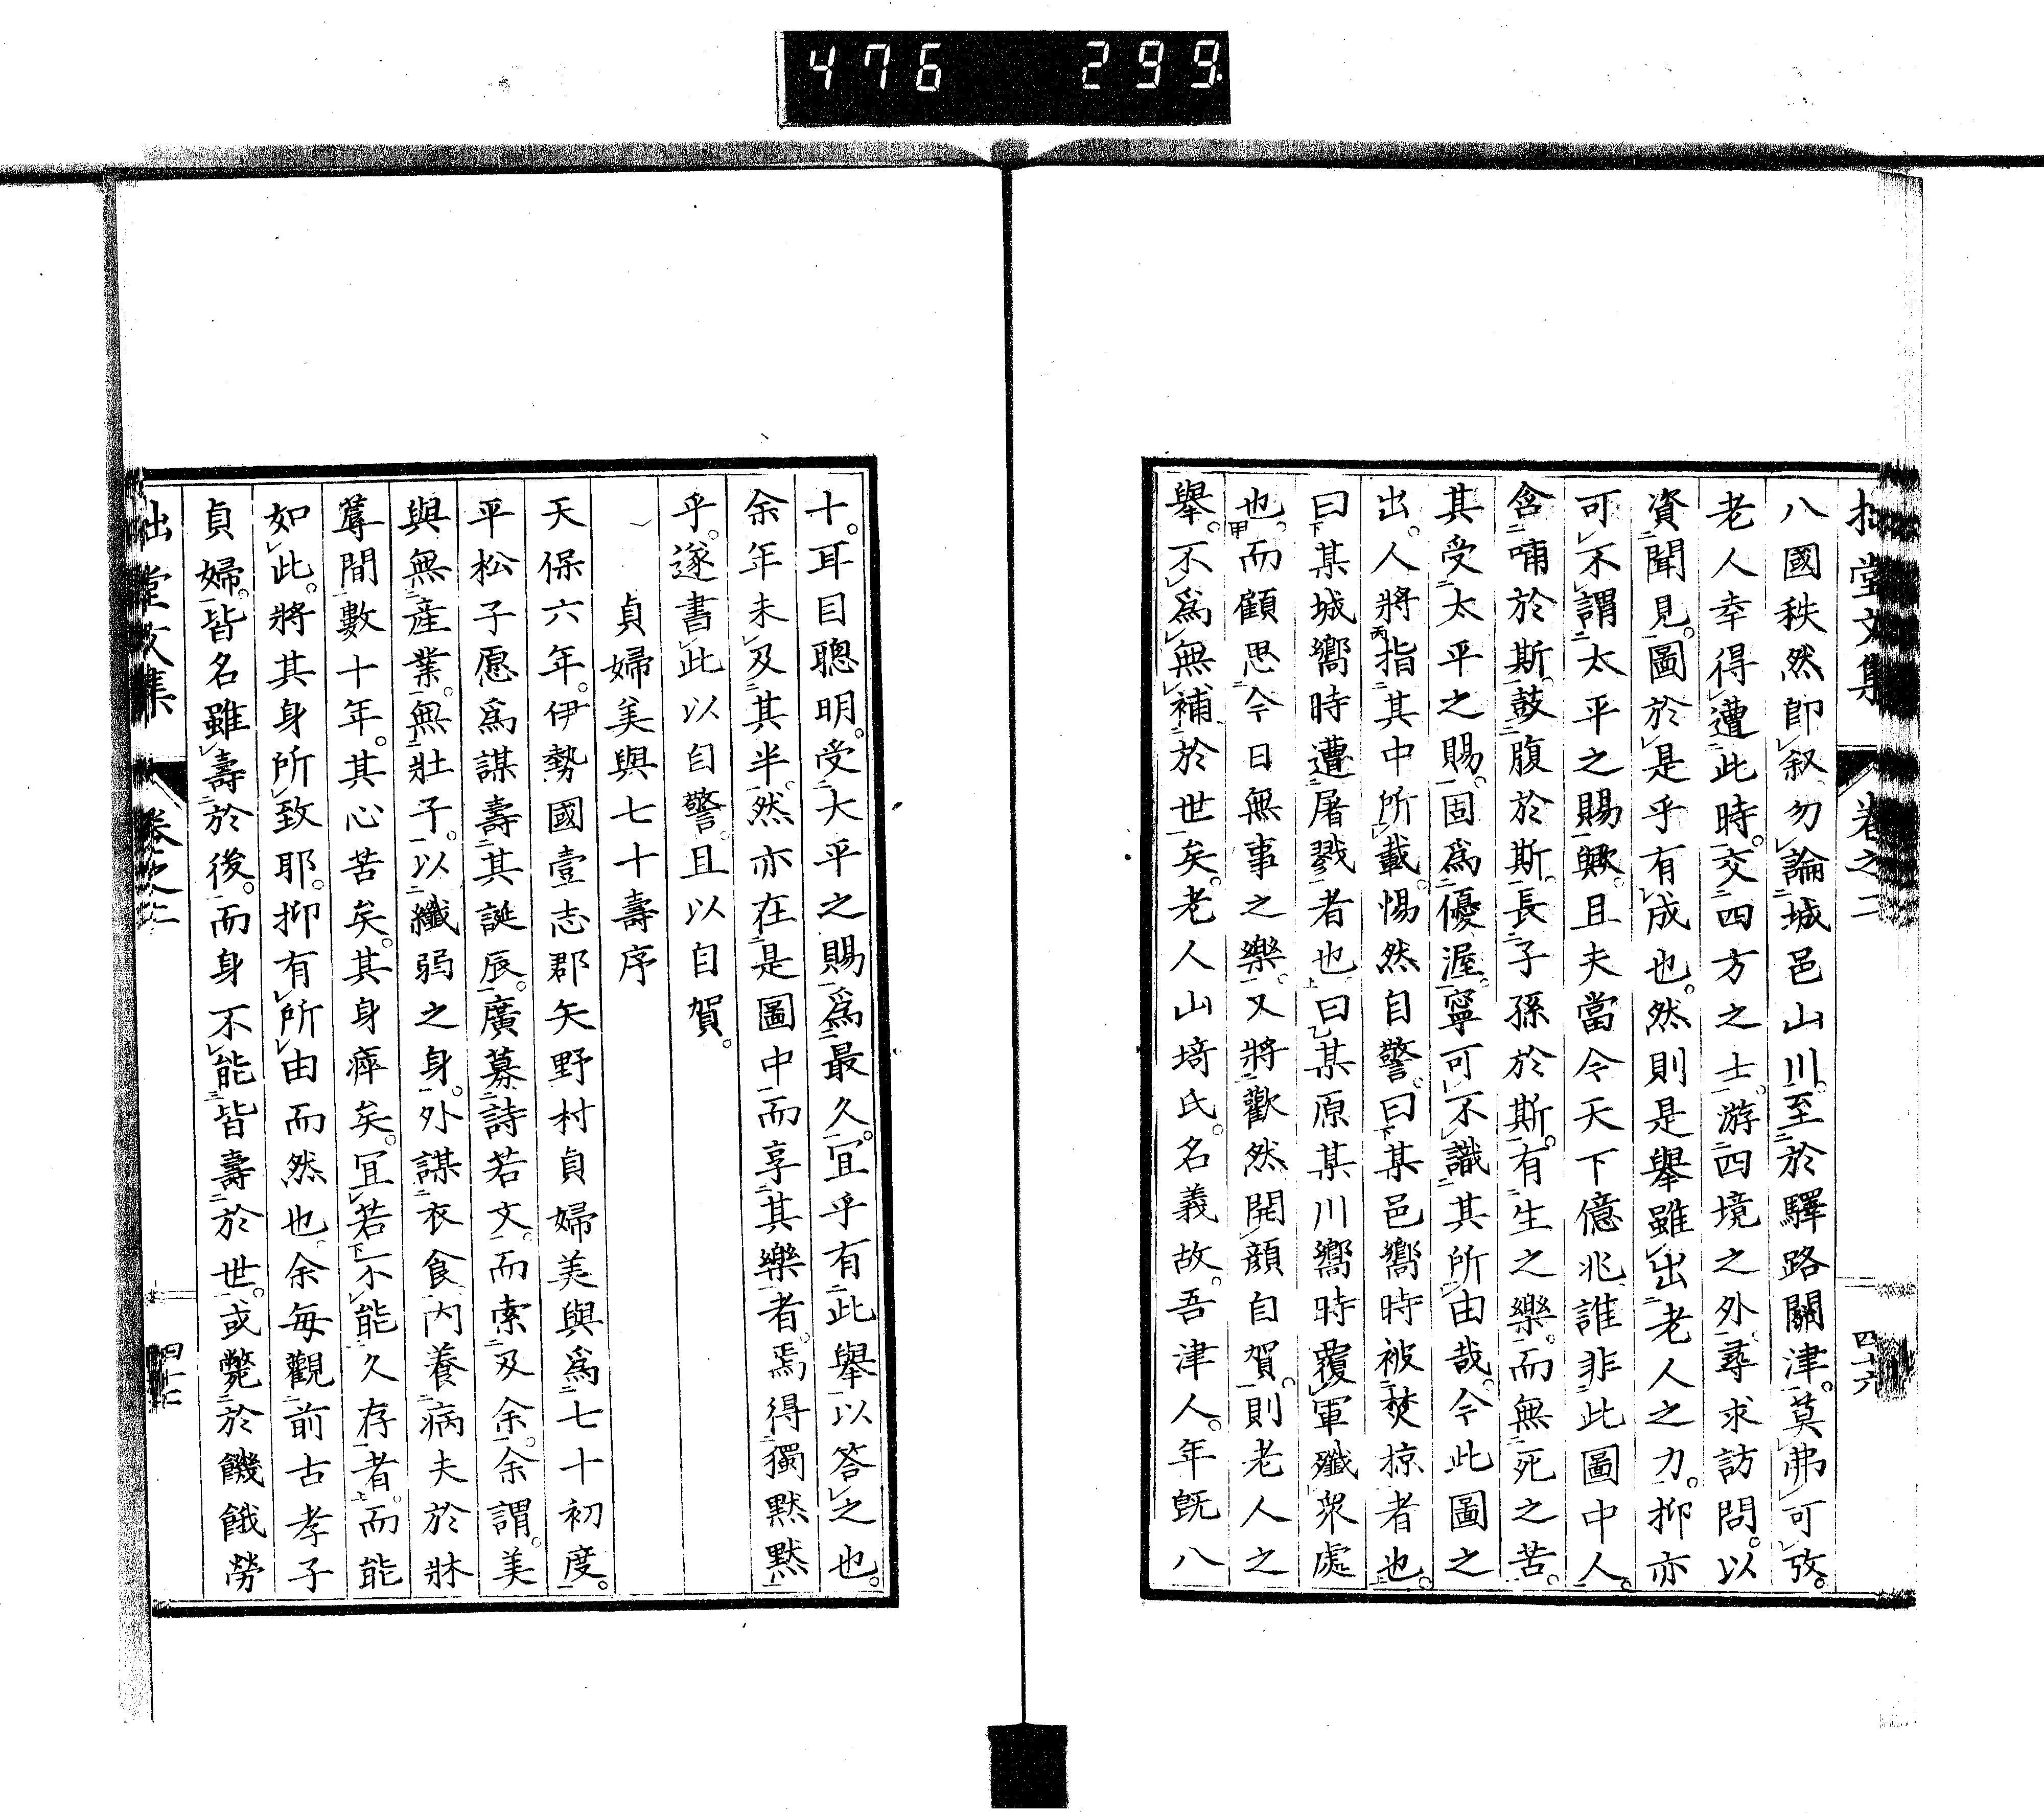 476 299
拙堂文集 卷之二 四十六
八國秩然卽叙勿論城邑山川至於驛路關津莫弗可攷。
老人幸得遭此時。交四方之士游四境之外尋求訪問。以
資聞見。圖於是乎有成也。然則是擧雖出老人之力。抑亦
可不謂太平之賜歟。且夫當今天下億兆誰非此圖中人。
含哺於斯。鼓腹於斯。長子孫於斯。有生之樂。而無死之苦。
其受太平之賜。固爲優渥。寧可不識其所由哉。今此圖之
出。人將指其中所載。惕然自警。曰某邑嚮時被焚掠者也。
曰某城嚮時遭屠戮者也曰某原某川嚮時覆軍殲衆處
也。而顧思今日無事之樂。又將歡然開顏自賀。則老人之
擧。不爲無補於世矣。老人山埼氏。名義故。吾津人。年旣八
十。耳目聰明。受大平之賜爲最久。宜乎有此擧以答之也。
余年未及其半。然亦在是圖中而享其樂者。焉得獨默默
乎。遂書此以自警。且以自賀。
貞婦美與七十壽序
天保六年。伊勢國壹志郡矢野村貞婦美與爲七十初度。
平松子愿爲謀壽其誕辰。廣募詩若文。而索及余。余謂。美
與無產業。無壯子。以纖弱之身。外謀衣食內養病夫於牀
蓐間數十年。其心苦矣。其身瘁矣。宜若不能久存者。而能
如此。將其身所致耶。抑有所由而然也。余每觀前古孝子
貞婦。皆名雖壽於後。而身不能皆壽於世。或斃於饑餓勞
拙堂文集 卷之二 四十七